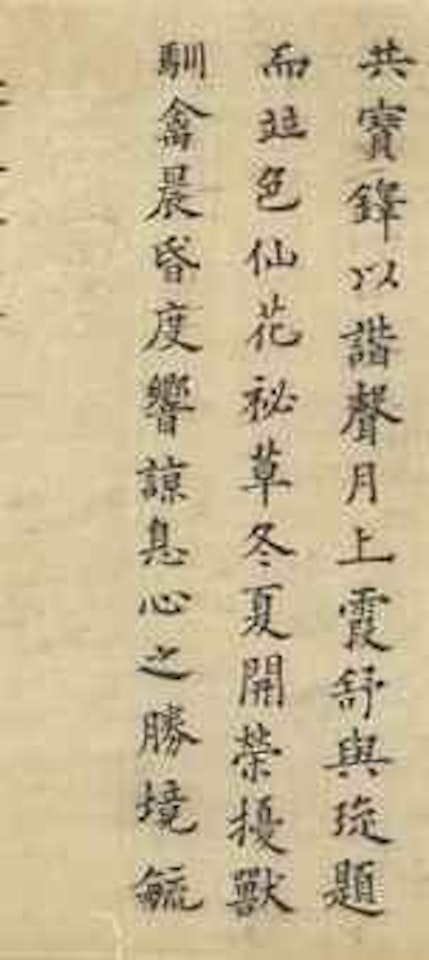 共寶鐸以諧聲月上霞舒與琁題
而並色仙花祕草冬夏開榮擾獸
馴禽晨昏度響諒息心之勝境毓